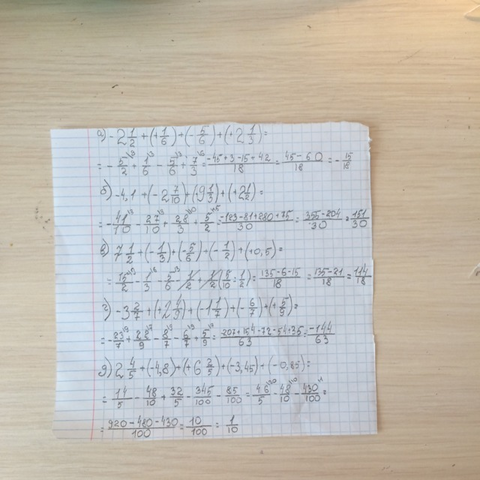 а) -2 1/2 + (+1/6) + (-5/6) + (+2 1/3) =
= -5/2 + 1/6 - 5/6 + 7/3 = (-45+3-15+42)/18 = (45-60)/18 = -15/18
б) -4,1 + (-2 7/10) + (9 1/3) + (+2 1/2) =
= -41/10 - 27/10 + 28/3 + 5/2 = (-123-81+280+75)/30 = (355-204)/30 = 151/30
в) 7 1/2 + (-1/3) + (-5/6) + (-1/2) + (+0,5) =
= 15/2 - 1/3 - 5/6 - 1/2 + 1/2 = (135-6-15)/18 = (135-21)/18 = 114/18
г) -3 2/7 + (+2 4/9) + (-1 1/7) + (-6/7) + (+5/9) =
= -23/7 + 22/9 - 8/7 - 6/7 + 5/9 = = -144/63
д) 2 4/5 + (-4,8) + (+6 2/5) + (-3,45) + (-0,85) =
= 14/5 - 48/10 + 32/5 - 345/100 - 85/100 = 46/5 - 48/10 - 430/100 =
= (920-480-430)/100 = 10/100 = 1/10